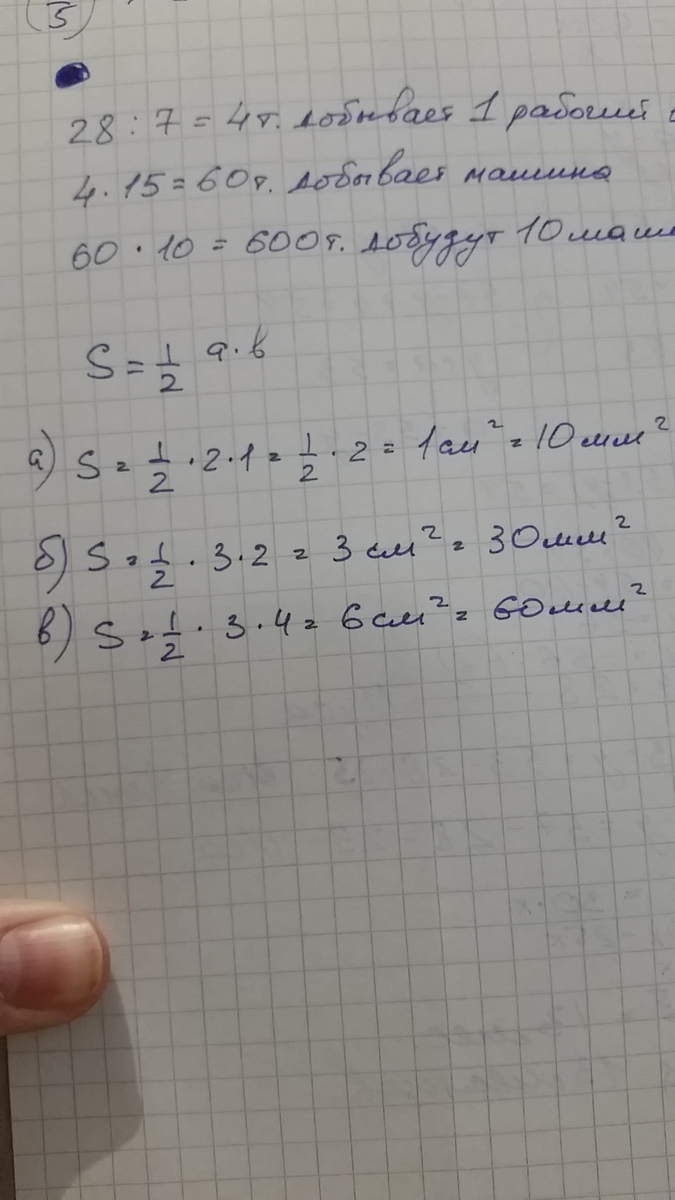 5
28 : 7 = 4т. добывает 1 рабочий
4 · 15 = 60т. добывает машина
60 · 10 = 600т. добудут 10 маш
S = 1/2 a · b
а) S = 1/2 · 2 · 1 = 1/2 · 2 = 1 см² = 10 мм²
б) S = 1/2 · 3 · 2 = 3 см² = 30 мм²
в) S = 1/2 · 3 · 4 = 6 см² = 60 мм²